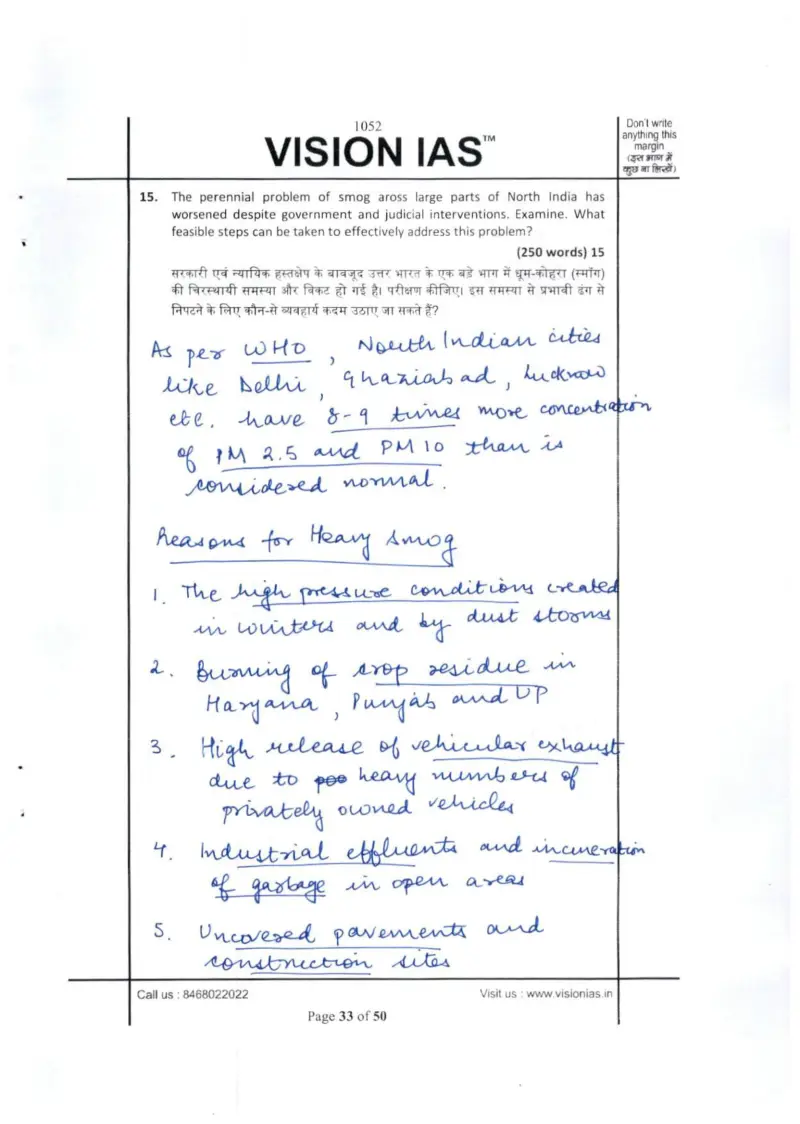 1052
VISION IAS™
Don't write
anything this
margin
(इस भाग में
कुछ ना लिखें)
15. The perennial problem of smog aross large parts of North India has
worsened despite government and judicial interventions. Examine. What
feasible steps can be taken to effectively address this problem?
(250 words) 15
सरकारी एवं न्यायिक हस्तक्षेप के बावजूद उत्तर भारत के एक बड़े भाग में धूम-कोहरा (स्मॉग)
की चिरस्थायी समस्या और विकट हो गई है। परीक्षण कीजिए। इस समस्या से प्रभावी ढंग से
निपटने के लिए कौन-से व्यवहार्य कदम उठाए जा सकते हैं?
As per WHO, North Indian cities
like Delhi, Ghaziabad, Lucknow
etc. have 8-9 times more concentration
of PM 2.5 and PM 10 than is
considered normal.
Reasons for Heavy Smog
1. The high pressure conditions created
in winters and by dust storms
2. Burning of crop residue in
Haryana, Punjab and UP
3. High release of vehicular exhaust
due to heavy numbers of
privately owned vehicles
4. Industrial effluents and incineration
of garbage in open areas
5. Uncovered pavements and
construction sites
Call us : 8468022022
Visit us : www.visionias.in
Page 33 of 50